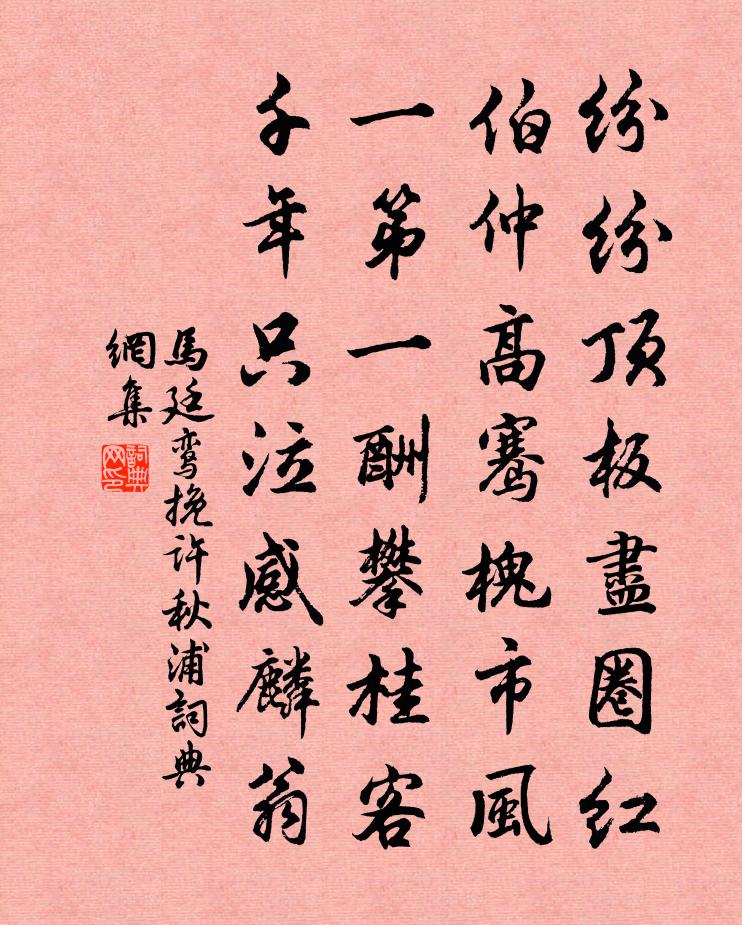 紛紛頂板盡圈红
伯仲高騫槐市風
一第一酬攀桂客
千年只泣感麟翁
馬廷鸾挽许秋浦詞典
網集
詞典
网印